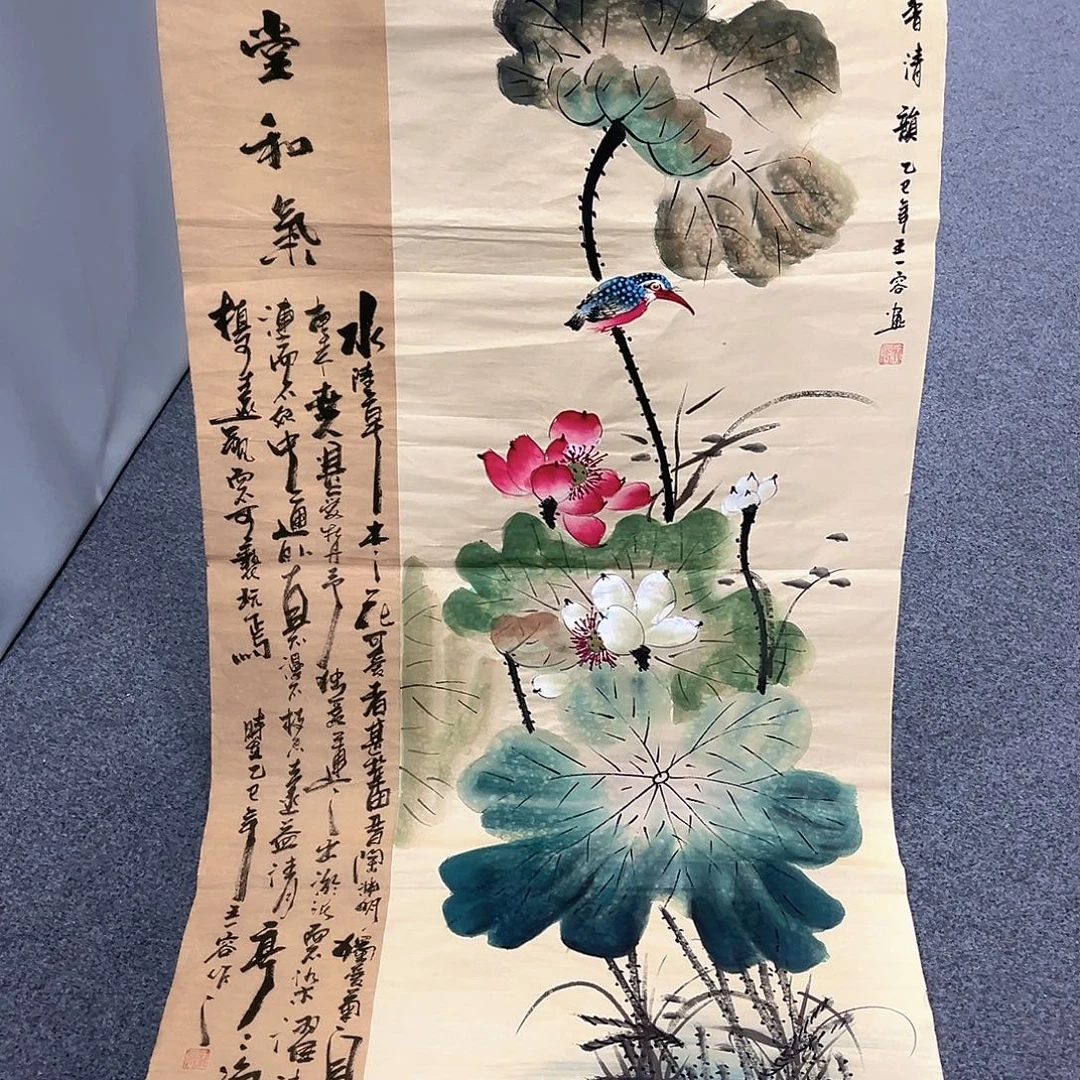 香清韻
乙巳年王一容畫
堂和氣
水陸草木之花可愛者甚蕃晉陶淵明獨愛菊自
甚愛牡丹予獨愛蓮之出淤泥而不染濯清
漣而不妖中通外直不蔓不枝香遠益清亭亭淨
植可遠觀而不可褻玩焉
時在乙巳年王一容作